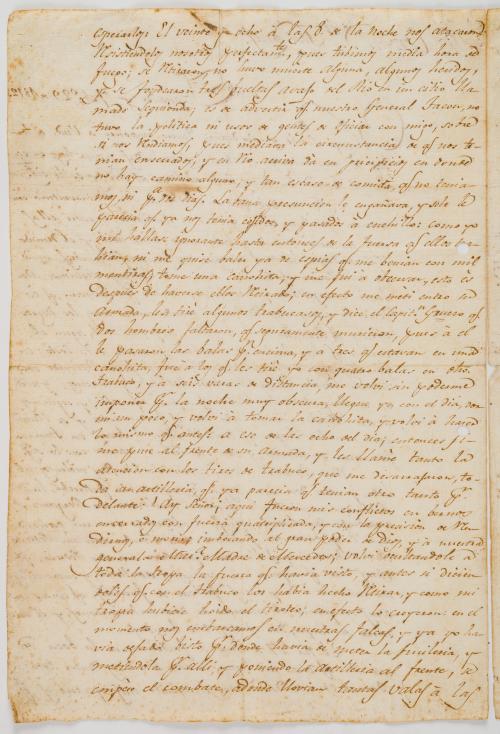 esperarlos. El veinte y ocho á las 8. de la noche nos atacaron
Resistiendolo nosotros perfectam.te, pues tubimos media hora de
fuego; se Retiraron, no huvo muerte alguna, algunos heridos,
y se fondearon tres bueltas avajo del Rio en un citio lla-
mado Seguionda; es de advertir q.e nuestro General Jacon, no
tuvo la politica ni usos de gentes de oficiar con migo, sobre
si nos Rendiamos, pues mediava la circunstancia de q.e nos te-
nian encerrados; y un Rio arriva da en precipicios en donde
no hay camino alguno, y tan escaso de comida, q.e no tenia-
mos, ni p.a dos dias. La buena presuncion le engañava, y solo le
parecia q.e ya nos tenia cojidos, y pasados á cuchillo: como yo
me hallase ignorante hasta entonces de la fuerza q.e ellos
trian, ni me quise baler ya de espias q.e me benian con mil
mentiras; tomé una canohita, y me fui á obcervar, esto es
despues de haverse ellos Retirado; en efecto me meti entre su
Armada, les tiré algunos trabucasos, y dice el Capit.n Guero q.e
dos hombres faltaron, q.e seguramente murieron, pues á el
le pasaron las balas p.r encima, y á tres q.e estavan en una
canohita, fue á los q.e les tiré yo con quatro balas en otro
trabuco, y á seis varas de distancia, me volvi sin poderme
imponer p.r la noche muy obscura, llegué ya con el dia, dor-
mi un poco, y volvi á tomar la canohita, y volvi á hacer
lo mismo q.e antes á eso de las ocho del dia; entonces fi-
me puse al frente de su Armada, y les llamé tanto la
atencion con los tiros de trabuco, que me dispararon, to-
da la artilleria, q.e ya parecia q.e tenian otro tanto p.r
delante. Ay Señor; aqui fueron mis conflictos en berme
encerrado con fuerza quadriplicada, y con la precision de Ren-
dirme, ó morir; imbocando al gran poder de Dios, y á nuestra
general.a Maria Madre de Mercedes; volvi ocultandole á
toda la tropa la fuerza q.e havia visto, y antes si dicien-
doles q.e con el trabuco los havia hecho Retirar, y como mi
tropa hubiese hoido el tiroteo; en efecto lo creyeron: en el
momento nos embarcamos en nuestras falcas, y ya yo ha-
via desde bisto p.r donde havia de meter la fusileria, y
metiendola p.r alli, y poniendo la artilleria al frente, se
empesó el combate, adonde llovian tantas valas á las